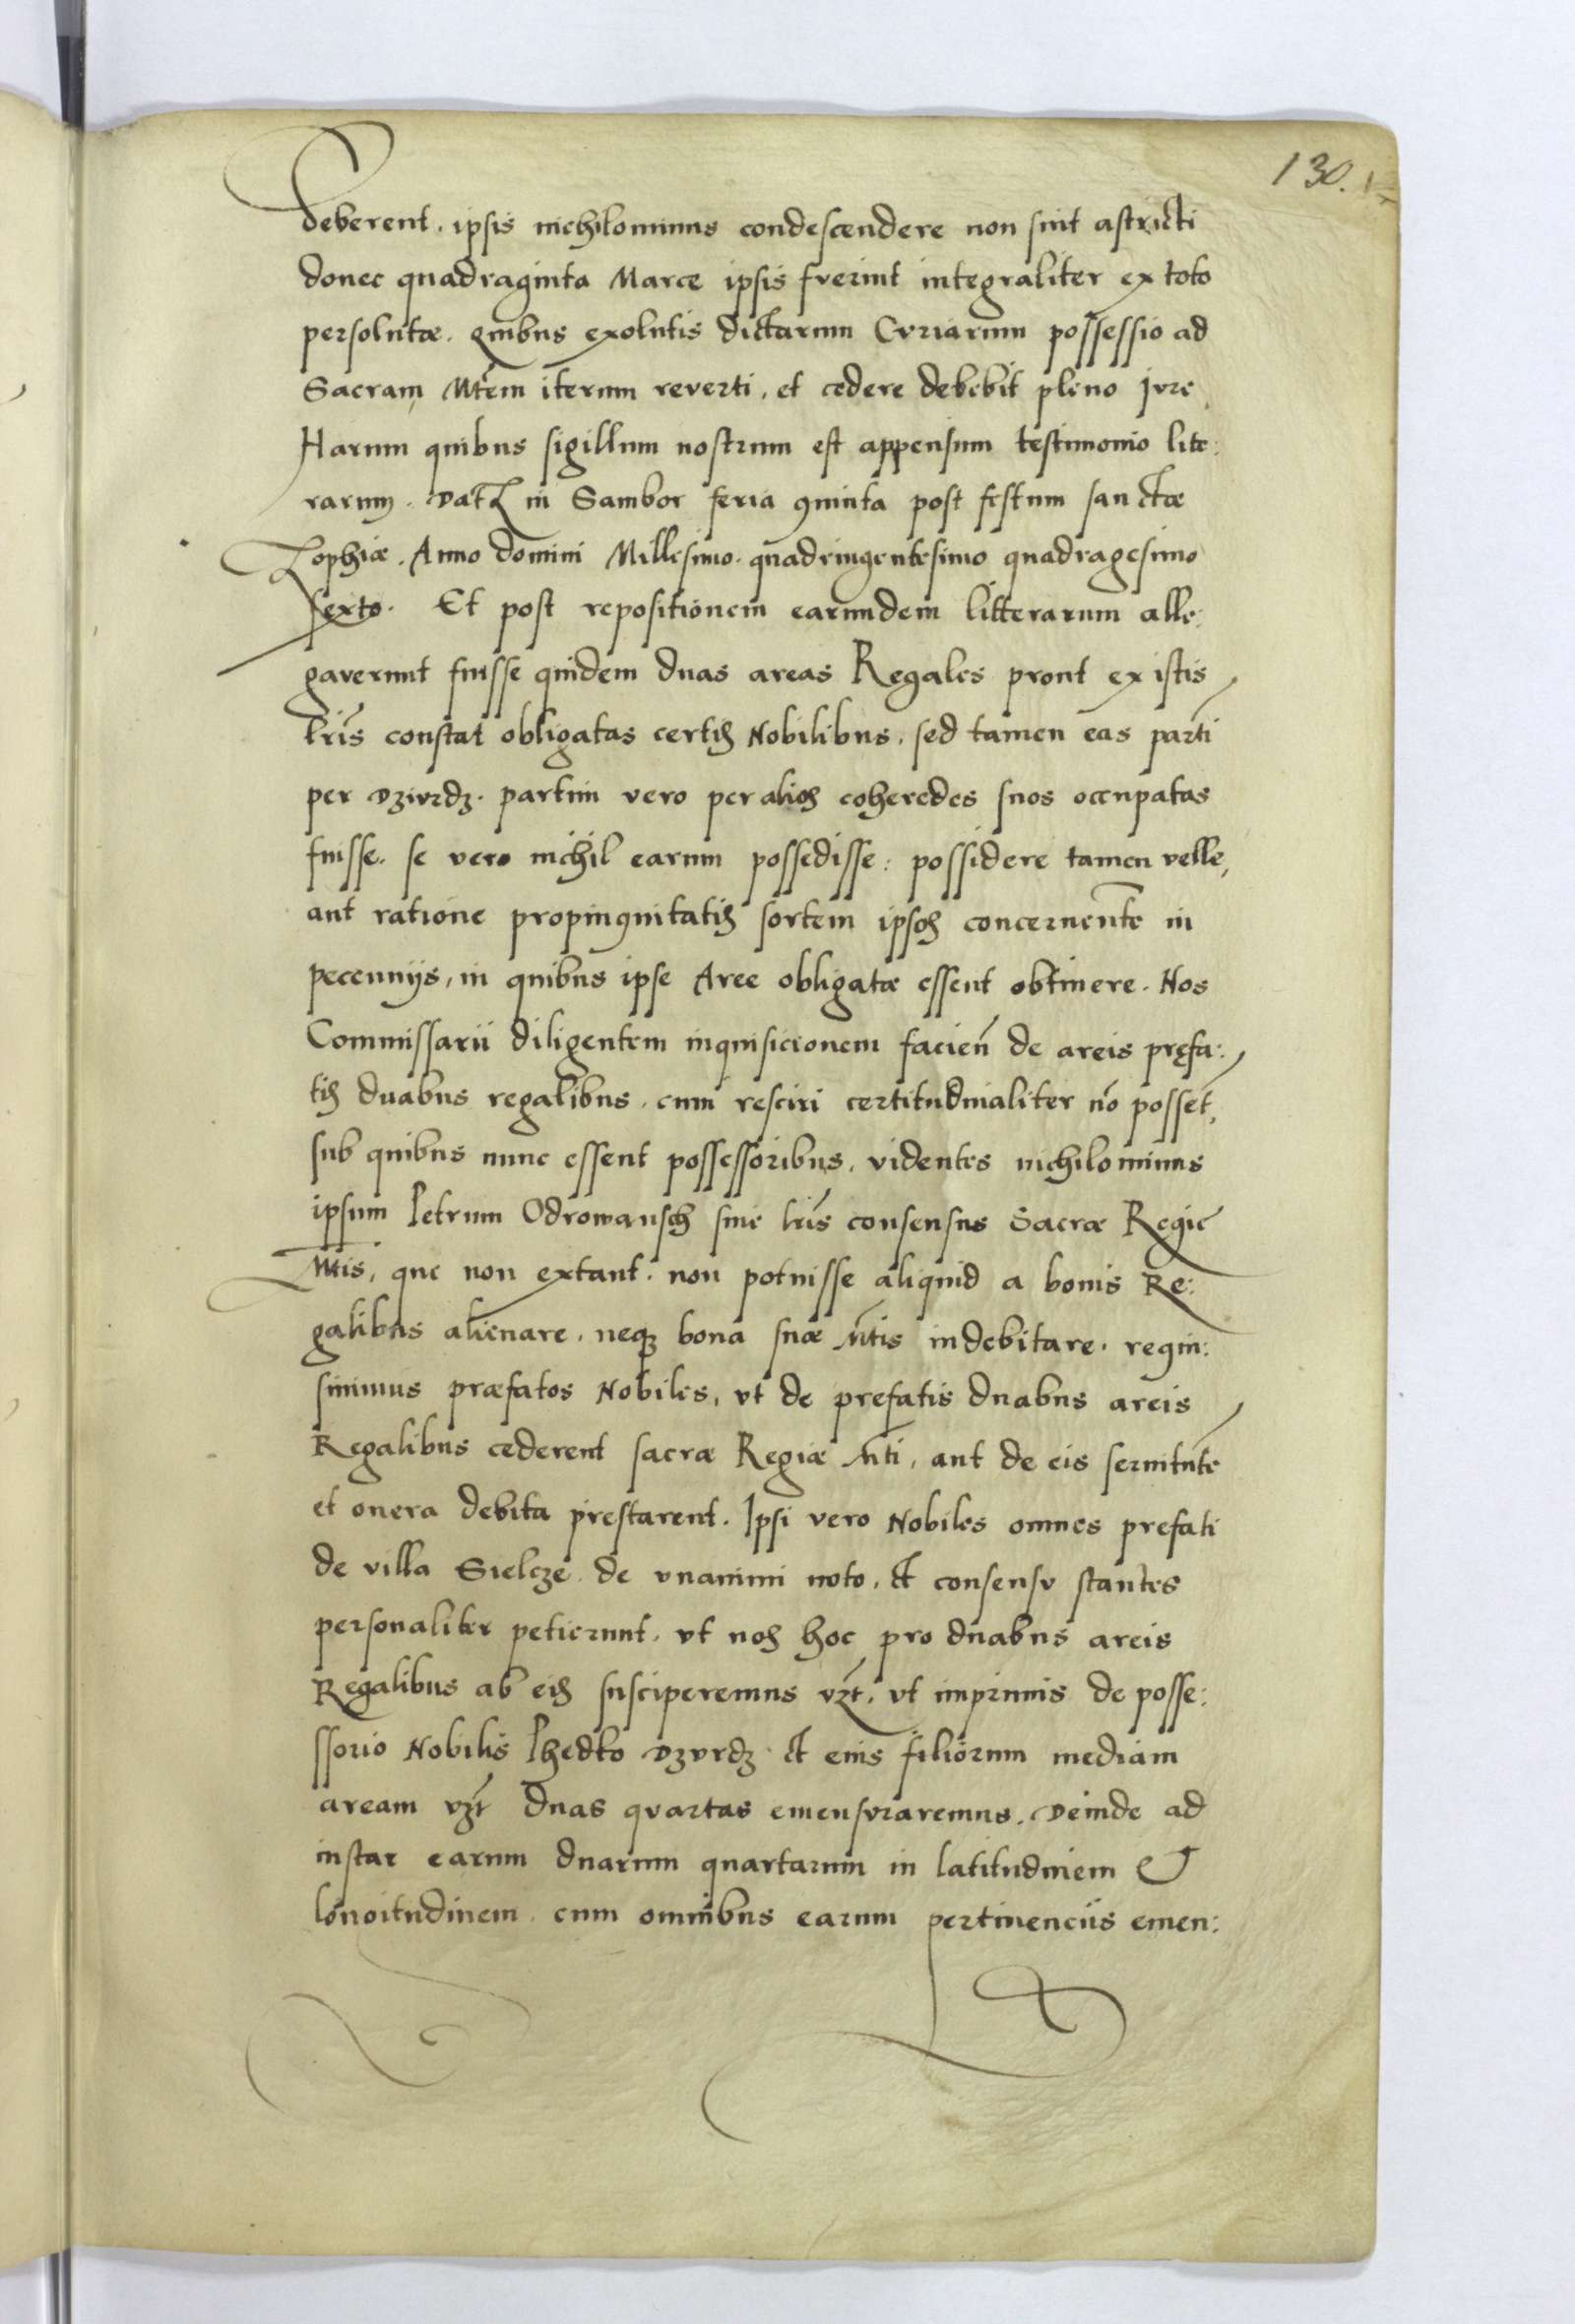 130.
deberent. ipsis nichilominus condescendere non sint astricti
donec quadraginta Marce ipsis fverint integraliter ex toto
persolutæ. quibus exolutis dictarum Cvriarum possessio ad
Sacram Mtem iterum reverti, et cedere debebit pleno jvre
Harum quibus sigillum nostrum est appensum testimonio lite:
rarum. Dat in Sambor feria quinta post festum sanctæ
Zophiæ. Anno domini Millesimo. quadringentesimo quadragesimo
sexto. Et post repositionem earundem litterarum alle:
gaverunt fuisse quidem duas areas Regales prout ex istis
lris constat obligatas certis Nobilibus, sed tamen eas parti
per Dzivrdz. partim vero per alios coheredes suos occupatas
fuisse. se vero nichil earum possedisse: possidere tamen velle,
aut ratione propinquitatis sortem ipsos concernente in
pecunijs, in quibus ipse Aree obligatæ essent obtinere. Nos
Commissarii diligentem inquisicionem facien de areis pręfa:
tis dvabus regalibus. cum resciri certitudinaliter no posset,
sub quibus nunc essent possessoribus, videntes nichilominus
ipsum Petrum Odrowansch sine lris consensus Sacræ Regie
Mtis, que non extant. non potuisse aliquid a bonis Re:
galibus alienare. neq bona suæ Mtis indebitare. requi:
sivimus præfatos Nobiles, vt de prefatis duabus areis
Regalibus cederent sacræ Regiæ Mti, aut de eis servitute
et onera debita prestarent. Ipsi vero Nobiles omnes prefati
de villa Sielcze de vnanimi voto, et consensv stantes
personaliter petierunt. vt nos hoc pro duabus areis
Regalibus ab eis susciperemus vzt. vt imprimis de posse:
ssorio Nobilis Phedko Dzvrdz et eius filiorum mediam
aream vzt duas qvartas emensvraremus. Deinde ad
instar earum duarum quartarum in latitudinem &
longitudinem. cum omnibus earum pertinenciis emen: